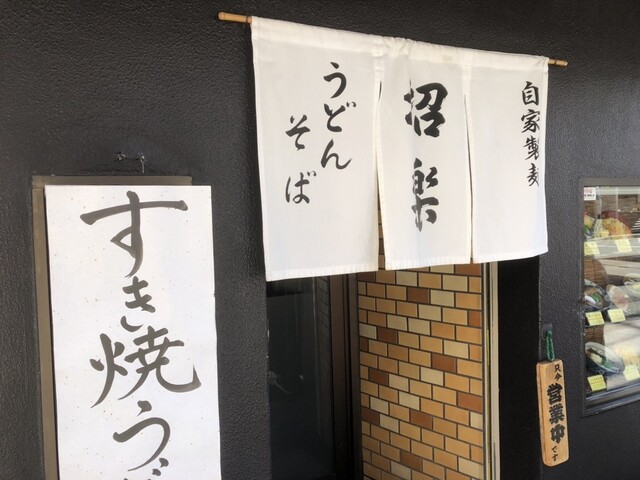 自家製麦
招楽
うどん
そば
すき焼う
只今営業中です